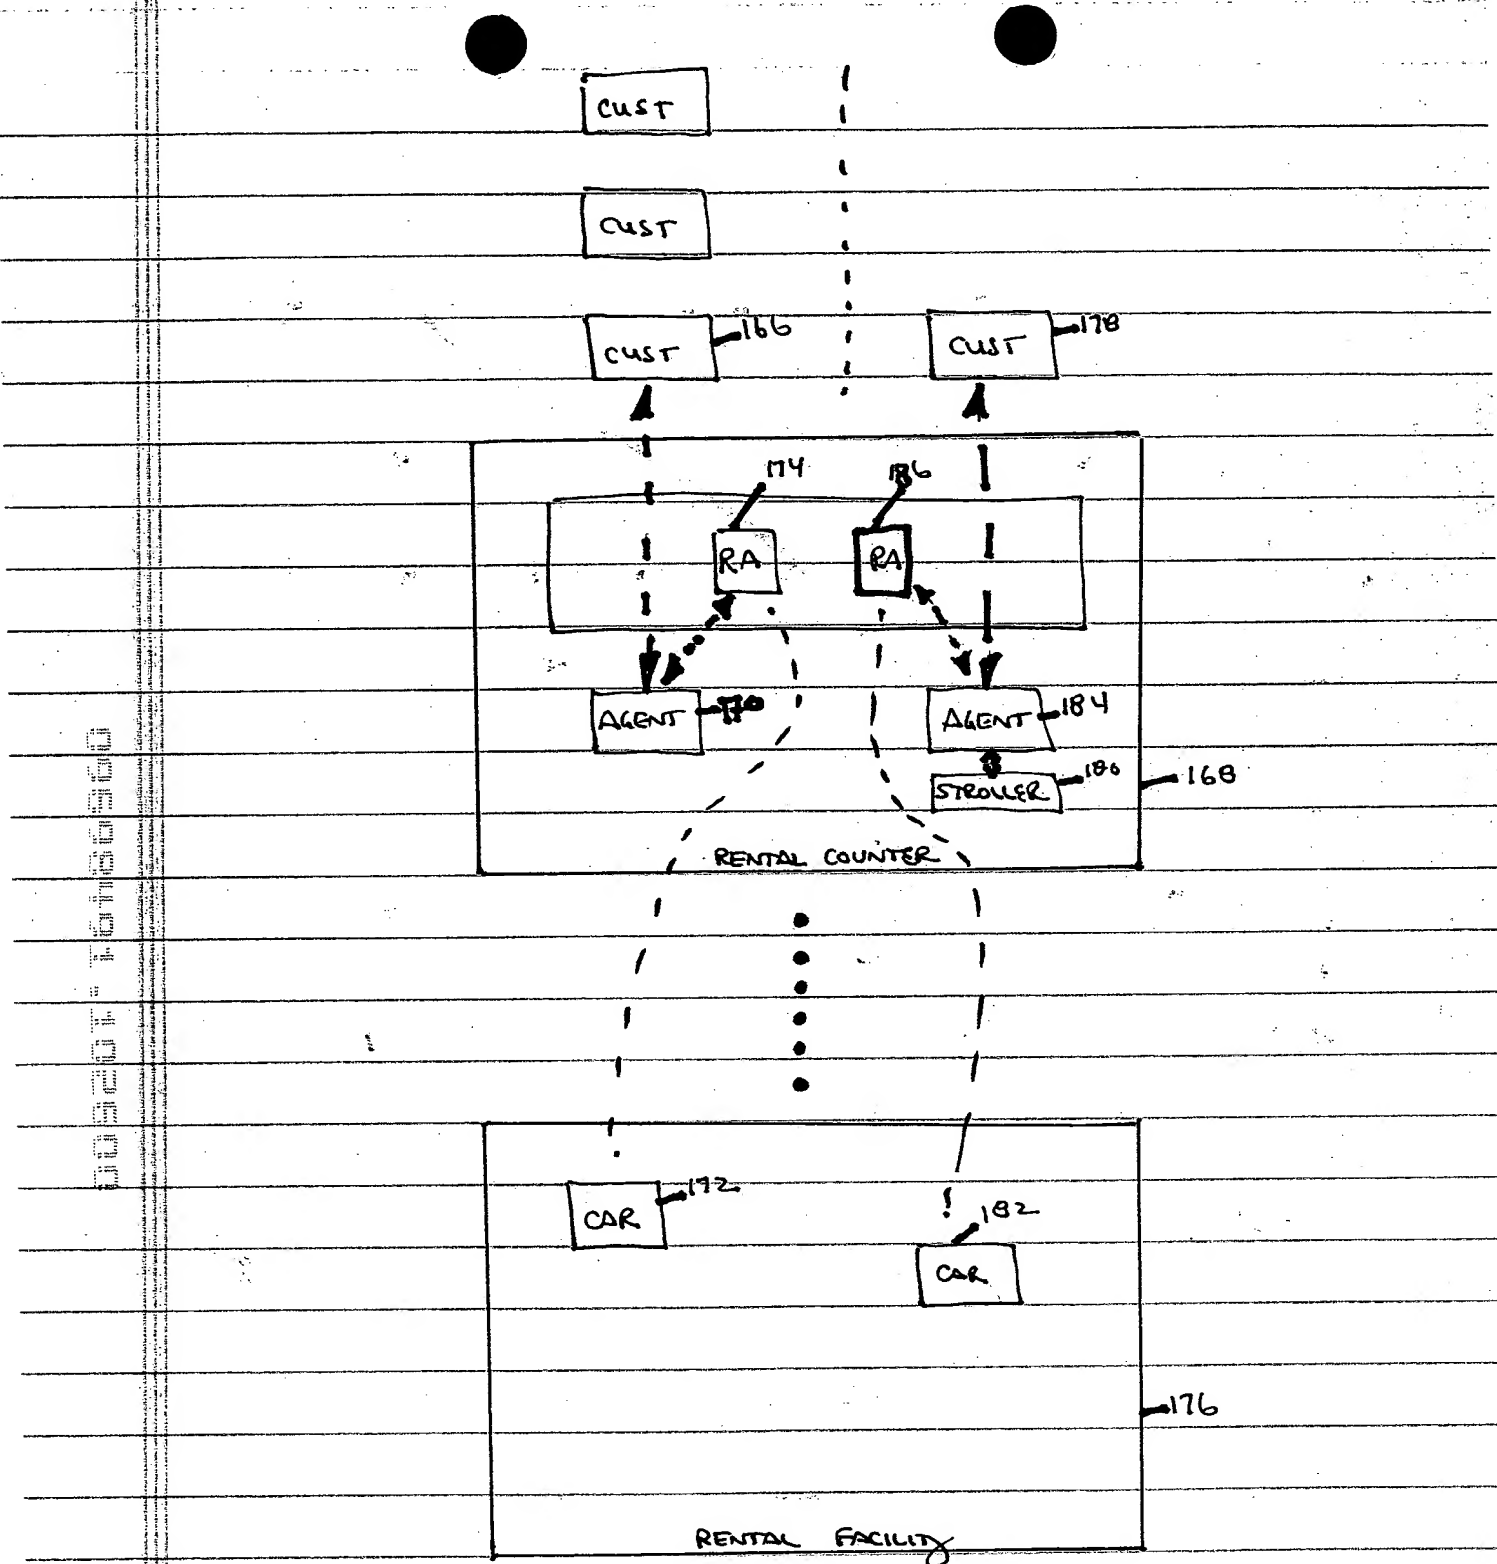 CUST
CUST
CUST 166
CUST 178
174
186
RA
RA
AGENT 170
AGENT 184
STROLLER 180
168
RENTAL COUNTER
CAR 172
182
CAR
176
RENTAL FACILITY